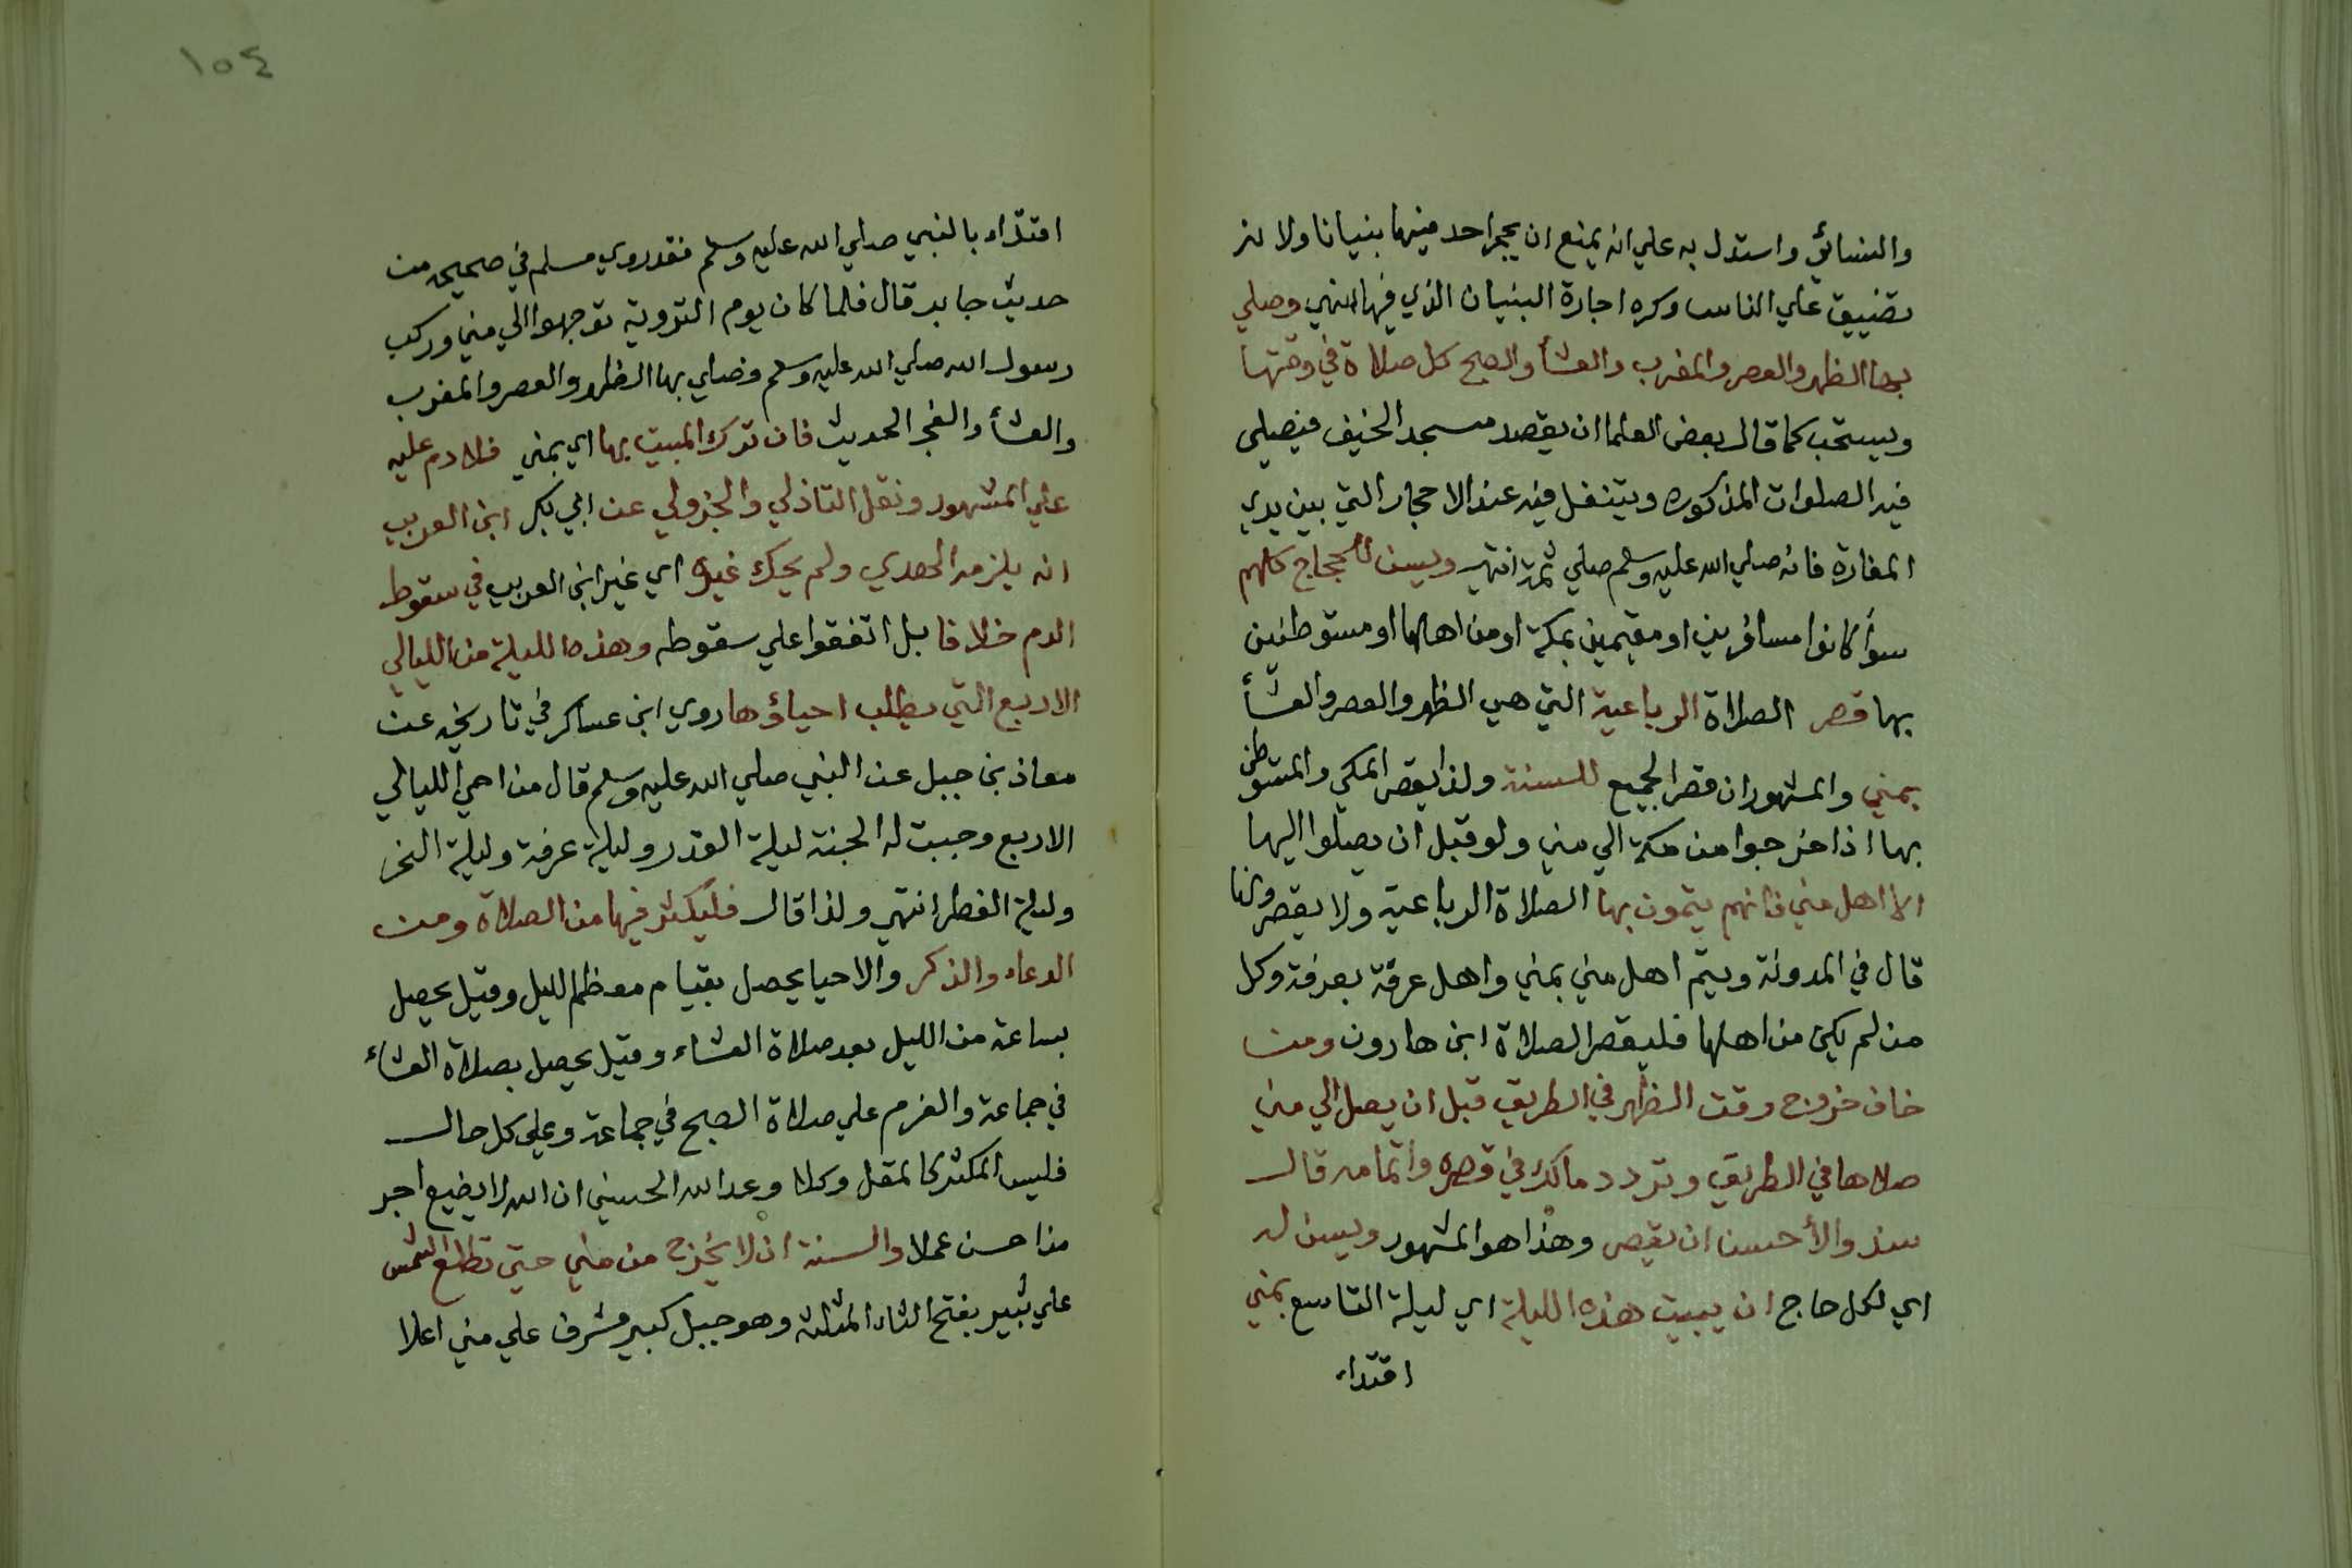 والنسائي واستدل به علي انه يمنع ان يحجر احد فيها بنيانا ولا نه
تضييق علي الناس وكره اجارة البنيان الذي فيها انتهي وصلي
بها الظهر والعصر والمغرب والعشأ والصبح كل صلاة في وقتها
ويستحب كما قال بعض العلما ان يقصد مسجد الخيف فيصلي
فيه الصلوات المذكوره ويتنفل فيه عند الاحجار التي بين يدي
المغارة فانه صلي الله عليه وسلم صلي ثمة انتهي ويسن للحجاج كلهم
سوأ كانوا مسافرين او مقيمين بمكة او من اهلها او مستوطنين
بها قصر الصلاة الرباعية التي هي الظهر والعصر والعشأ
بمني والمشهور ان قصر الجميع للسنة ولذا يقصر المكي والمستوطن
بها اذا خرجوا من مكة الي مني ولو قبل ان يصلوا اليها
الا اهل مني فانهم يتمون بها الصلاة الرباعية ولا يقصرونها
قال في المدونة ويتم اهل مني بمني واهل عرفة بعرفة وكل
من لم يكن من اهلها فليقصر الصلاة ابن هارون ومن
خاف خروج وقت الظهر في الطريق قبل ان يصل الي مني
صلاها في الطريق وتردد مالك في قصره واتمامه قال
سند والأحسن ان يقصر وهذا هو المشهور ويسن له
اي لكل حاج ان يبيت هذه الليلة اي ليلة التاسع بمني
اقتداء
١٥٤
اقتداء بالنبي صلي الله عليه وسلم فقد روي مسلم في صحيحه من
حديث جابر قال فلما كان يوم التروية توجهوا الي مني وركب
رسول الله صلي الله عليه وسلم فصلي بها الظهر والعصر والمغرب
والعشأ والفجر الحديث فان ترك المبيت بها اي بمني فلا دم عليه
علي المشهور ونقل التاذلي والجزولي عن ابي بكر ابن العربي
انه يلزمه الهدي ولم يحك غيره اي غير ابن العربي في سقوط
الدم خلافا بل اتفقوا علي سقوطه وهذه الليلة من الليالي
الاربع التي يطلب احياؤها روي ابن عساكر في تاريخه عن
معاذ بن جبل عن النبي صلي الله عليه وسلم قال من احيى الليالي
الاربع وجبت له الجنة ليلة القدر وليلة عرفة وليلة النحر
وليلة الفطر انتهي ولذا قال فليكثر فيها من الصلاة ومن
الدعاء والذكر والاحيا يحصل بقيام معظم الليل وقيل يحصل
بساعة من الليل بعد صلاة العشاء وقيل يحصل بصلاة العشاء
في جماعة والعزم علي صلاة الصبح في جماعة وعلى كل حال
فليس المكثر كالمقل وكلا وعد الله الحسني ان الله لا يضيع اجر
من احسن عملا والسنة ان لا يخرج من مني حتي تطلع الشمس
علي ثبير بفتح الثاء المثلثة وهو جبل كبير مشرف علي مني اعلا